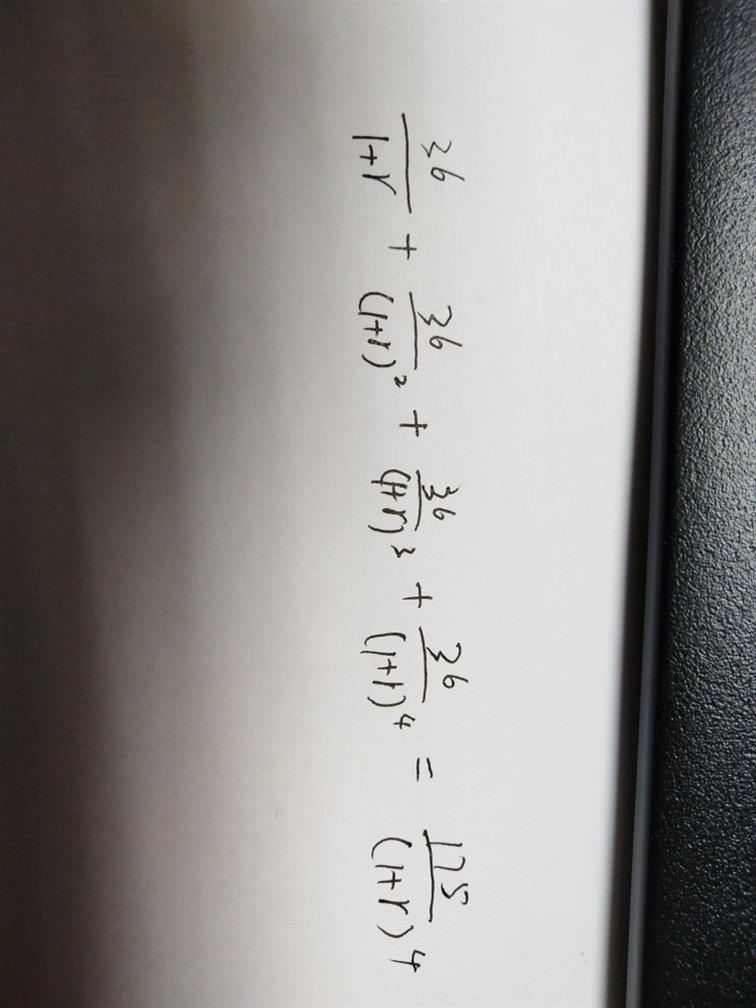 36/(1+r) + 36/(1+r)² + 36/(1+r)³ + 36/(1+r)⁴ = 175/(1+r)⁴